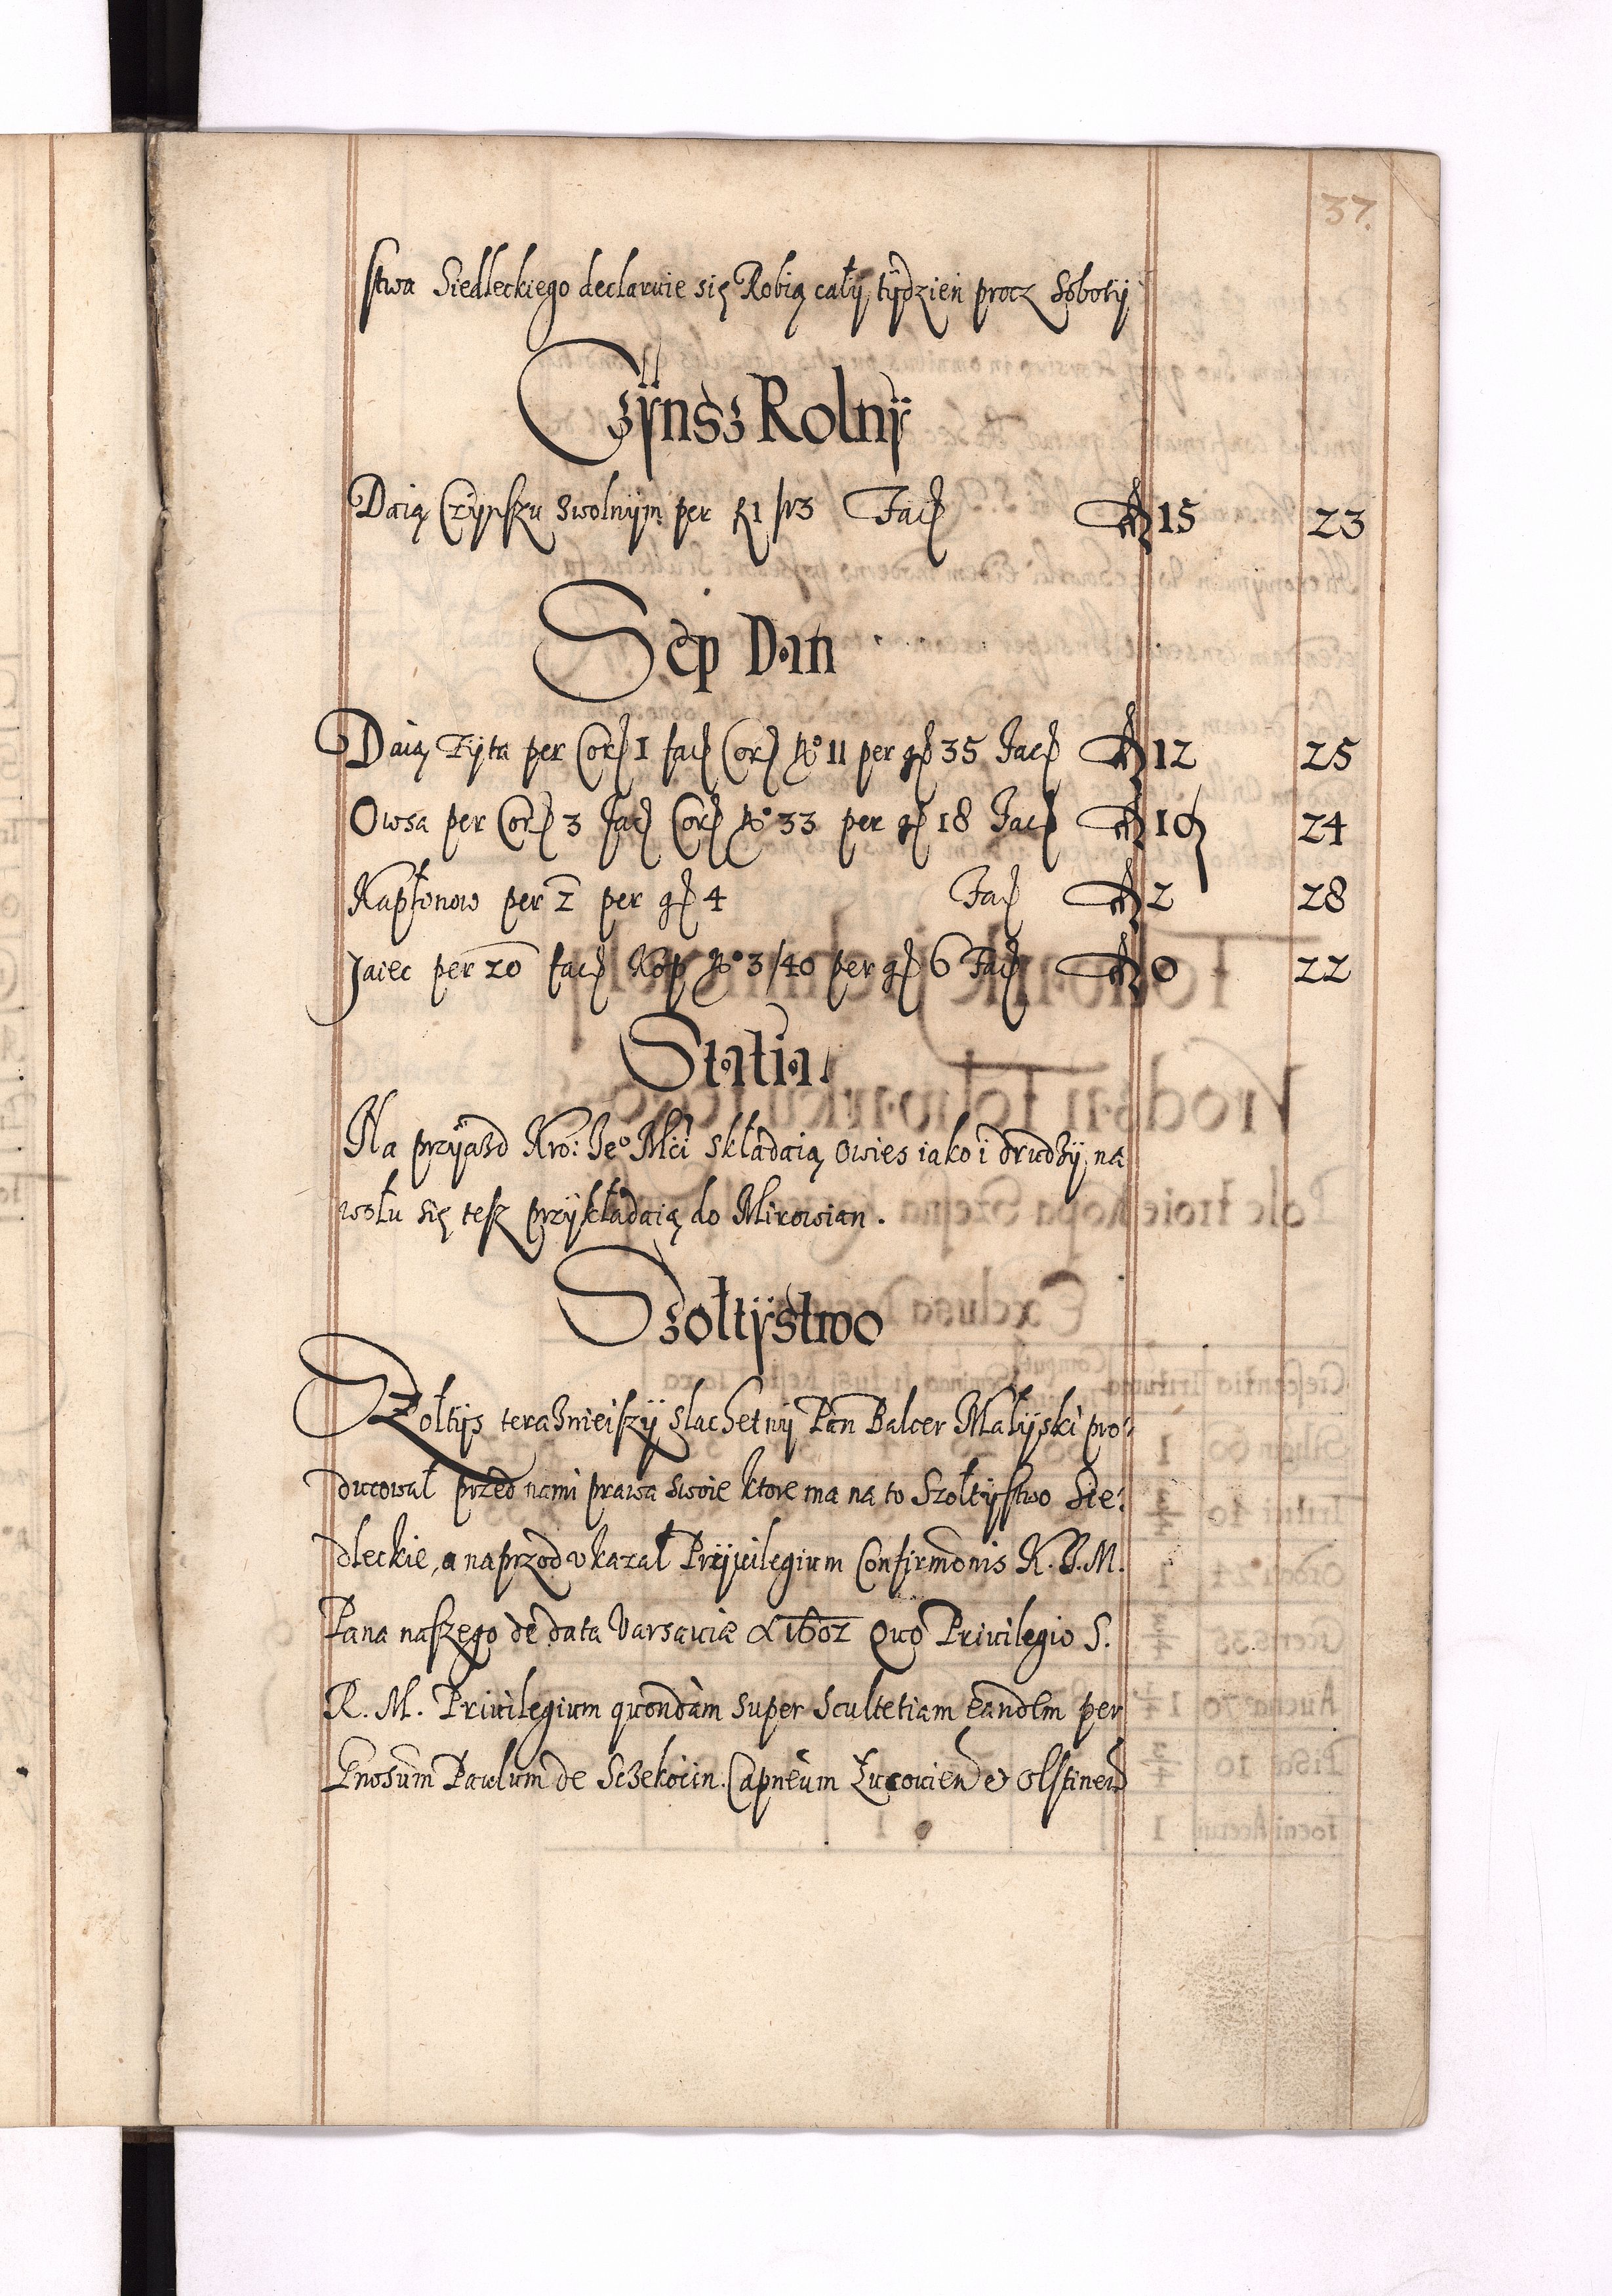 37.
stwa Siedleckiego declaruie się Robią cały tÿdzień procz Sobotÿ
Czÿnsz Rolnÿ
Daią Czÿnszu Swolnÿm per fl 1 /13 Fac fl 15 23
Sep Dan
Daią Zÿta per Cor 1 fac Cor No 11 per g 35 Fac fl 12 25
Owsa per Cor 3 Fac Cor No 33 per g 18 Fac fl 19 24
Kapłonow per 2 per g 4 Fac fl 2 28
Jaiec per 20 fac Kop No 3/40 per g 6 Fac fl 0 22
Statia
Na przÿazd Kro: Je° Mci składaią owies iako i drudzÿ na
wołu się tesz przÿkładaią do Mirowian.
Szołtÿstwo
Szołtÿs teraznieiszÿ slachetnÿ Pan Balcer Małÿski pro-
ducował przed nami prawa swoie ktore ma na to Szołtÿstwo Sie-
dleckie, a naprzod vkazał Prÿuilegium Confirmonis K. J. M.
Pana naszego de data Varsauiæ A 1602 Quo Priuilegio S.
R. M. Priuilegium quondam super Scultetiam eandem per
Gnosum Paulum de Sczekocin Capneum et olstinen